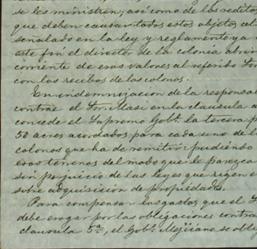 se les ministren; así como de los reditos
que deben causar todos estos objetos,
señalado en la ley y reglamento y a
este fin el director de la colonia abrirá
corriente de esos valores al referido
con los recibos de los colonos.
En indemnizacion de la responsa
contrae el Sor. Clasi en la clausula
concede el Supremo Gobº. la tercera p
50 acres acordados para cada uno de l
colonos que ha de remitir: pudiendo
esos terrenos del modo que le parezca
sin perjuicio de las leyes que rigen
sobre adquisicion de propiedades.
Para compensar los gastos que el
debe erogar por las obligaciones contra
clausula 5ª, el Gobº. Mejicano se obl